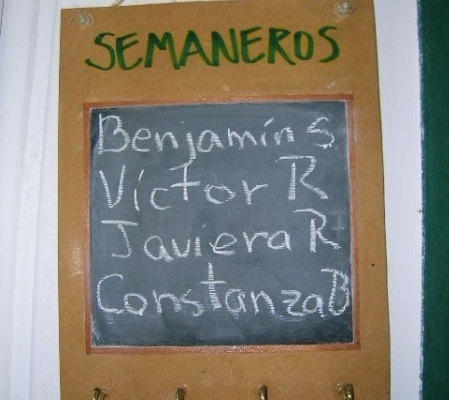 SEMANEROS
Benjamín S
Víctor R
Javiera R
Constanza B